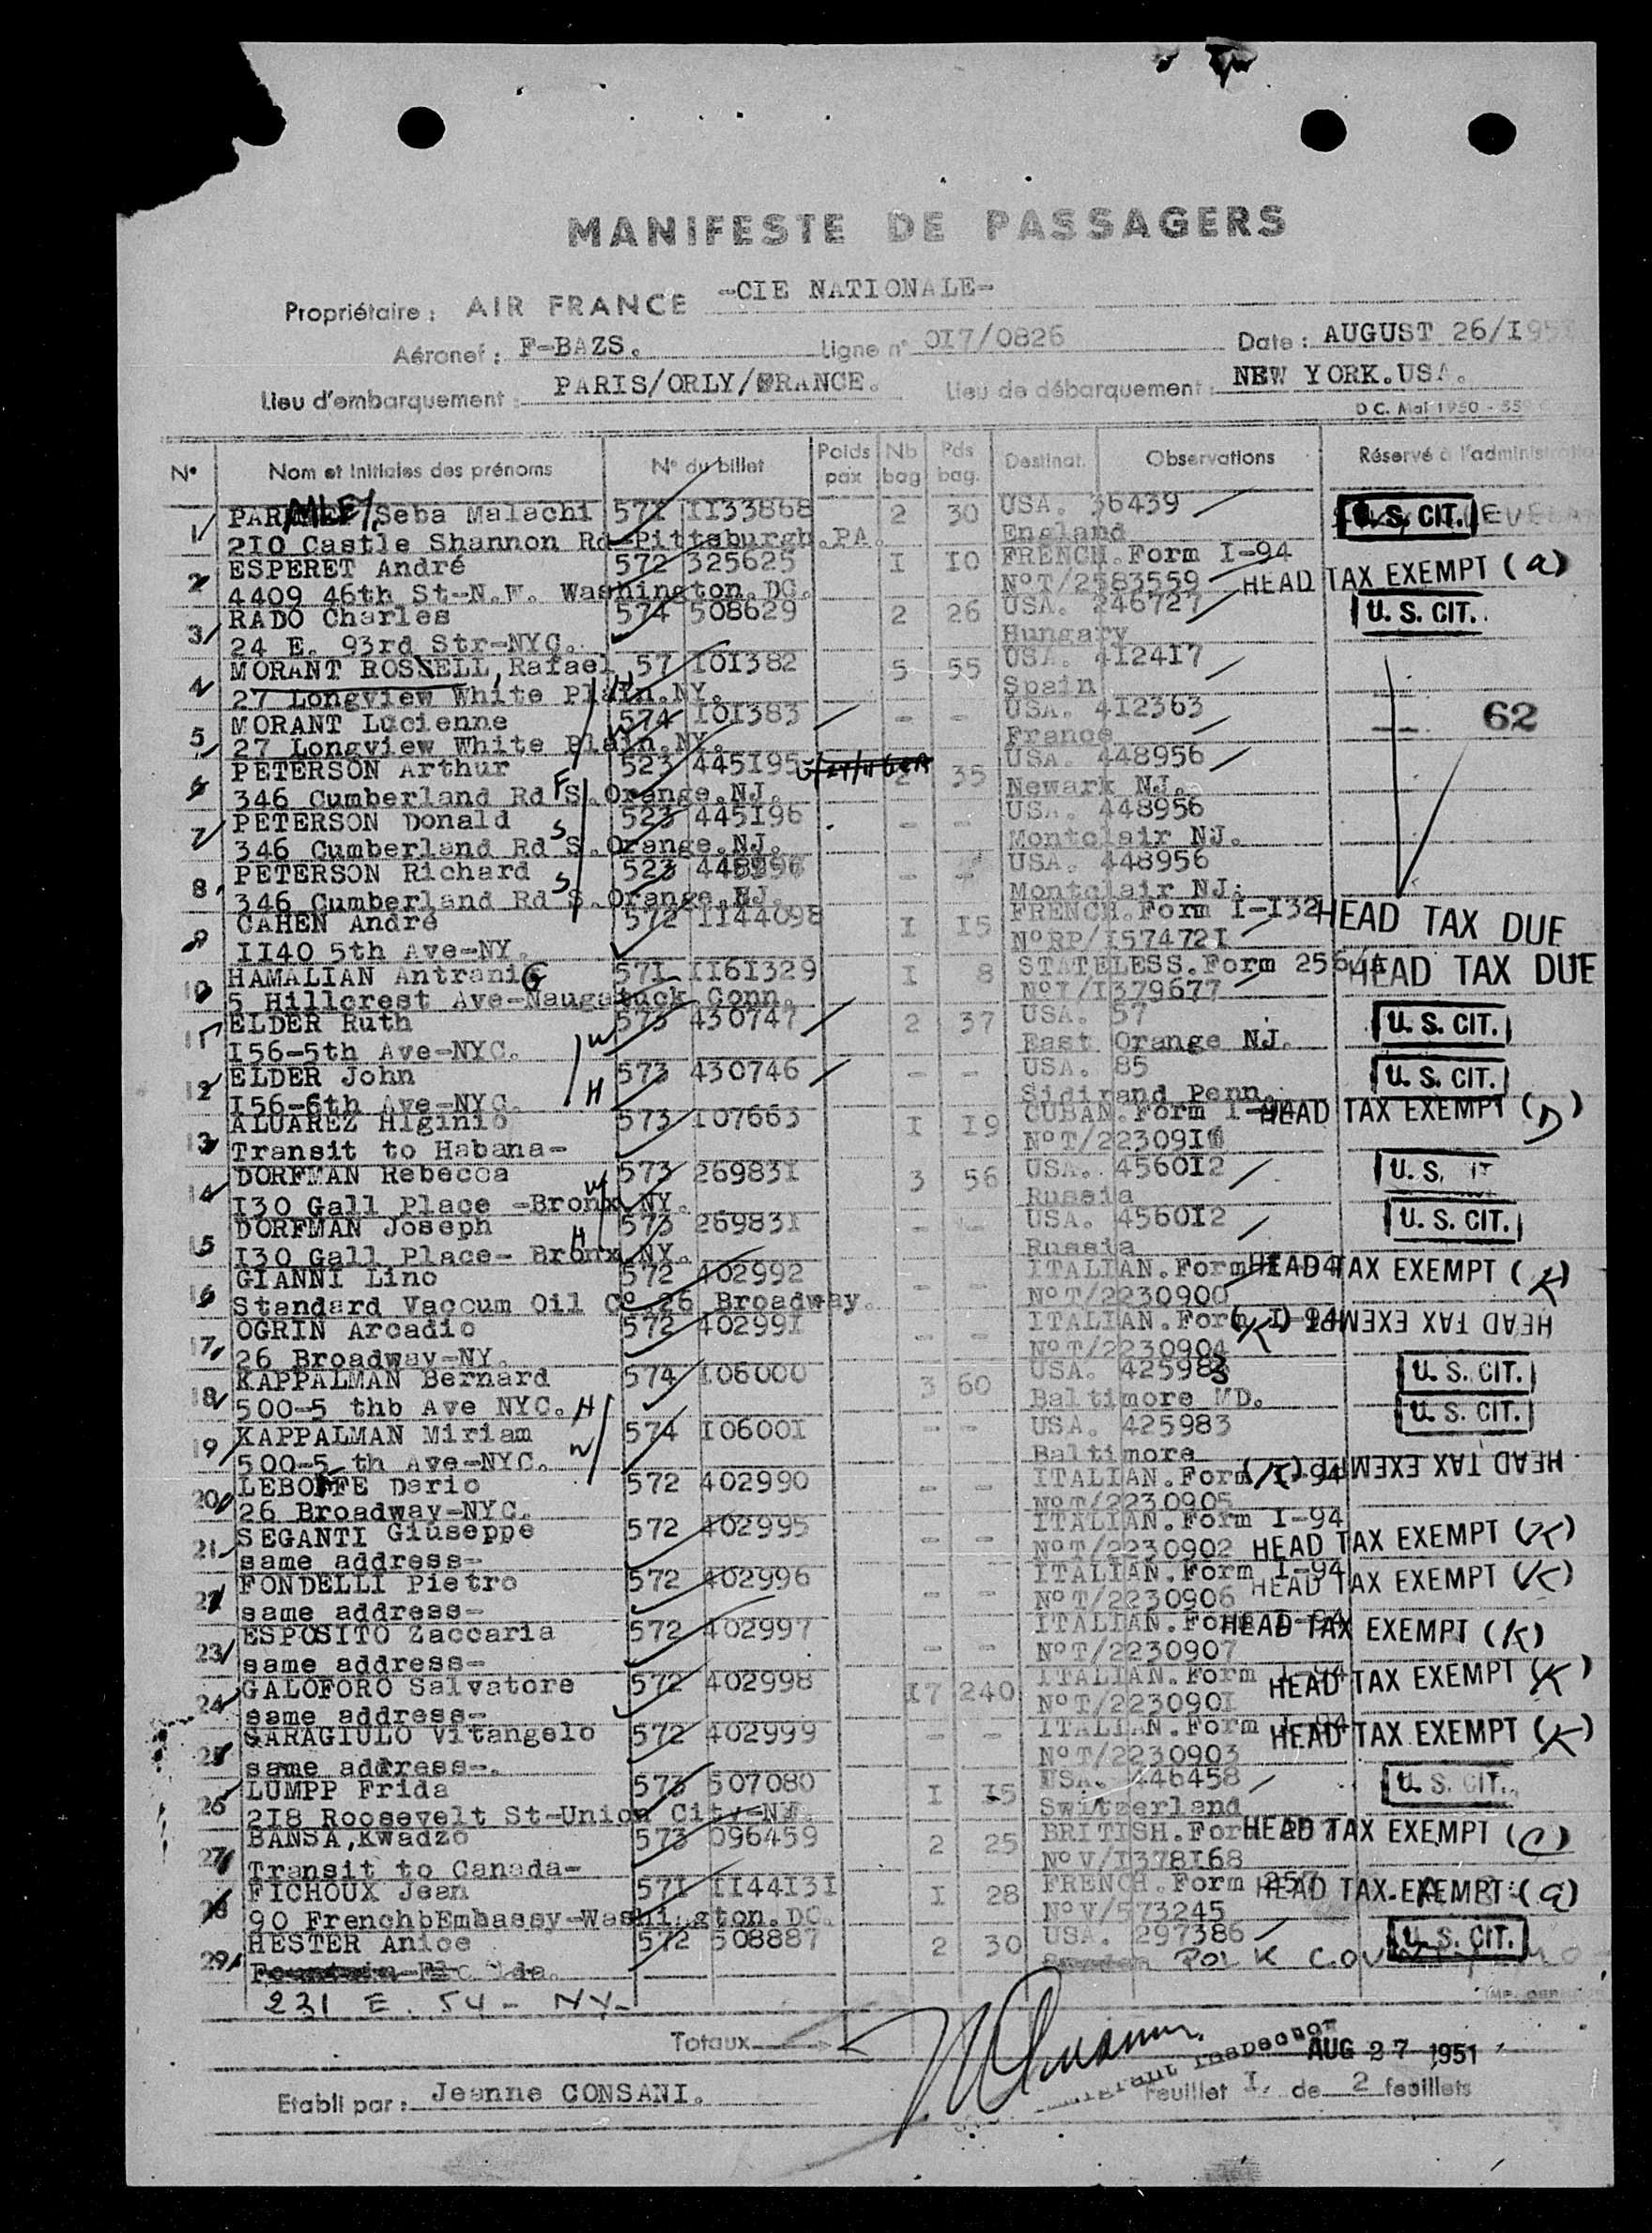 MANIFESTE DE PASSAGERS
Propriétaire : AIR FRANCE -CIE NATIONALE-
Aéronef : F-BAZS. Ligne n° 0I7/0826 Date : AUGUST 26/I951
Lieu d'embarquement : PARIS/ORLY/FRANCE. Lieu de débarquement : NEW YORK.USA.
D C. Mai 1950 -
N° Nom et Initiales des prénoms N° du billet Poids pax Nb bag Pds bag. Destinat. Observations Réservé à l'administration
1 PARMLEY, Seba Malachi 571 II33868 2 30 USA. 36439 U. S. CIT.
2I0 Castle Shannon Rd-Pittsburgh.PA. England
2 ESPERET André 572 325625 I I0 FRENCH.Form I-94
4409 46th St-N.W. Washington.DC. N°T/2583559 HEAD TAX EXEMPT (a)
3 RADO Charles 574 508629 2 26 USA. 246727 U. S. CIT.
24 E. 93rd Str-NYC. Hungary
4 MORANT ROSSELL, Rafael 57 I0I382 5 55 USA. 4I24I7
27 Longview White Plain.NY. H Spain
5 MORANT Lucienne 574 I0I383 - - USA. 4I2363 62
27 Longview White Plain.NY. France
6 PETERSON Arthur 523 445I95 2 35 USA. 448956
346 Cumberland Rd S.Orange.NJ. F Newark NJ.
7 PETERSON Donald 523 445I96 - - USA. 448956
346 Cumberland Rd S.Orange.NJ. S Montclair NJ.
8 PETERSON Richard 523 - - USA. 448956
346 Cumberland Rd S.Orange.NJ. S Montclair NJ.
9 CAHEN André 572 II44098 I I5 FRENCH.Form I-I32 HEAD TAX DUE
II40 5th Ave-NY. N°RP/I57472I
10 HAMALIAN AntraniG 57I II6I329 I 8 STATELESS.Form 256 HEAD TAX DUE
5 Hillcrest Ave-Naugatuck Conn. N°I/I379677
11 ELDER Ruth 573 430747 2 37 USA. 57 U. S. CIT.
I56-5th Ave-NYC. W East Orange NJ.
12 ELDER John 573 430746 - - USA. 85 U. S. CIT.
I56-6th Ave-NYC. H Sidirand Penn.
13 ALUAREZ Higinio 573 I07663 I I9 CUBAN.Form I-94 HEAD TAX EXEMPT (D)
Transit to Habana- N°T/22309I
14 DORFMAN Rebecca 573 26983I 3 56 USA. 4560I2 U. S. IT
I30 Gall Place -Bronx.NY. W Russia
15 DORFMAN Joseph 573 26983I - - USA. 4560I2 U. S. CIT.
I30 Gall Place- Bronx NY. H Russia
16 GIANNI Lino 572 402992 - - ITALIAN.Form I-94 HEAD TAX EXEMPT (K)
Standard Vacoum Oil C° 26 Broadway. N°T/2230900
17 OGRIN Arcadio 572 40299I - - ITALIAN.Form I-94 HEAD TAX EXEMPT (K)
26 Broadway-NY. N°T/2230904
18 KAPPALMAN Bernard 574 I06000 3 60 USA. 425983 U. S. CIT.
500-5 thb Ave NYC. H Baltimore MD.
19 KAPPALMAN Miriam 574 I0600I - - USA. 425983 U. S. CIT.
500-5 th Ave-NYC. W Baltimore
20 LEBOFFE Dario 572 402990 - - ITALIAN.Form I-94 HEAD TAX EXEMPT (K)
26 Broadway-NYC. N°T/2230905
21 SEGANTI Giuseppe 572 402995 - - ITALIAN.Form I-94
same address- N°T/2230902 HEAD TAX EXEMPT (K)
22 FONDELLI Pietro 572 402996 - - ITALIAN.Form I-94
same address- N°T/2230906 HEAD TAX EXEMPT (K)
23 ESPOSITO Zaccaria 572 402997 - - ITALIAN.Form I-94 HEAD TAX EXEMPT (K)
same address- N°T/2230907
24 GALOFORO Salvatore 572 402998 I7 240 ITALIAN.Form I-94 HEAD TAX EXEMPT (K)
same address- N°T/223090I
25 GARAGIULO Vitangelo 572 402999 - - ITALIAN.Form I-94 HEAD TAX EXEMPT (K)
same address-. N°T/2230903
26 LUMPP Frida 573 507080 I I5 USA. 446458 U. S. CIT.
2I8 Roosevelt St-Union City-NJ. Switzerland
27 BANSA,Kwadzo 573 096459 2 25 BRITISH.Form 257 HEAD TAX EXEMPT (C)
Transit to Canada- N°V/I378I68
28 FICHOUX Jean 57I II44I3I I 28 FRENCH.Form 257 HEAD TAX EXEMPT (a)
90 FrenchbEmbassy-Washington.DC. N°V/573245
29 HESTER Anice 572 508887 2 30 USA. 297386 U. S. CIT.
POLK COUNTY MO-
231 E. 54- NY-
Totaux
Immigrant Inspector
AUG 27 1951
Etabli par : Jeanne CONSANI. Feuillet I. de 2 feuillets